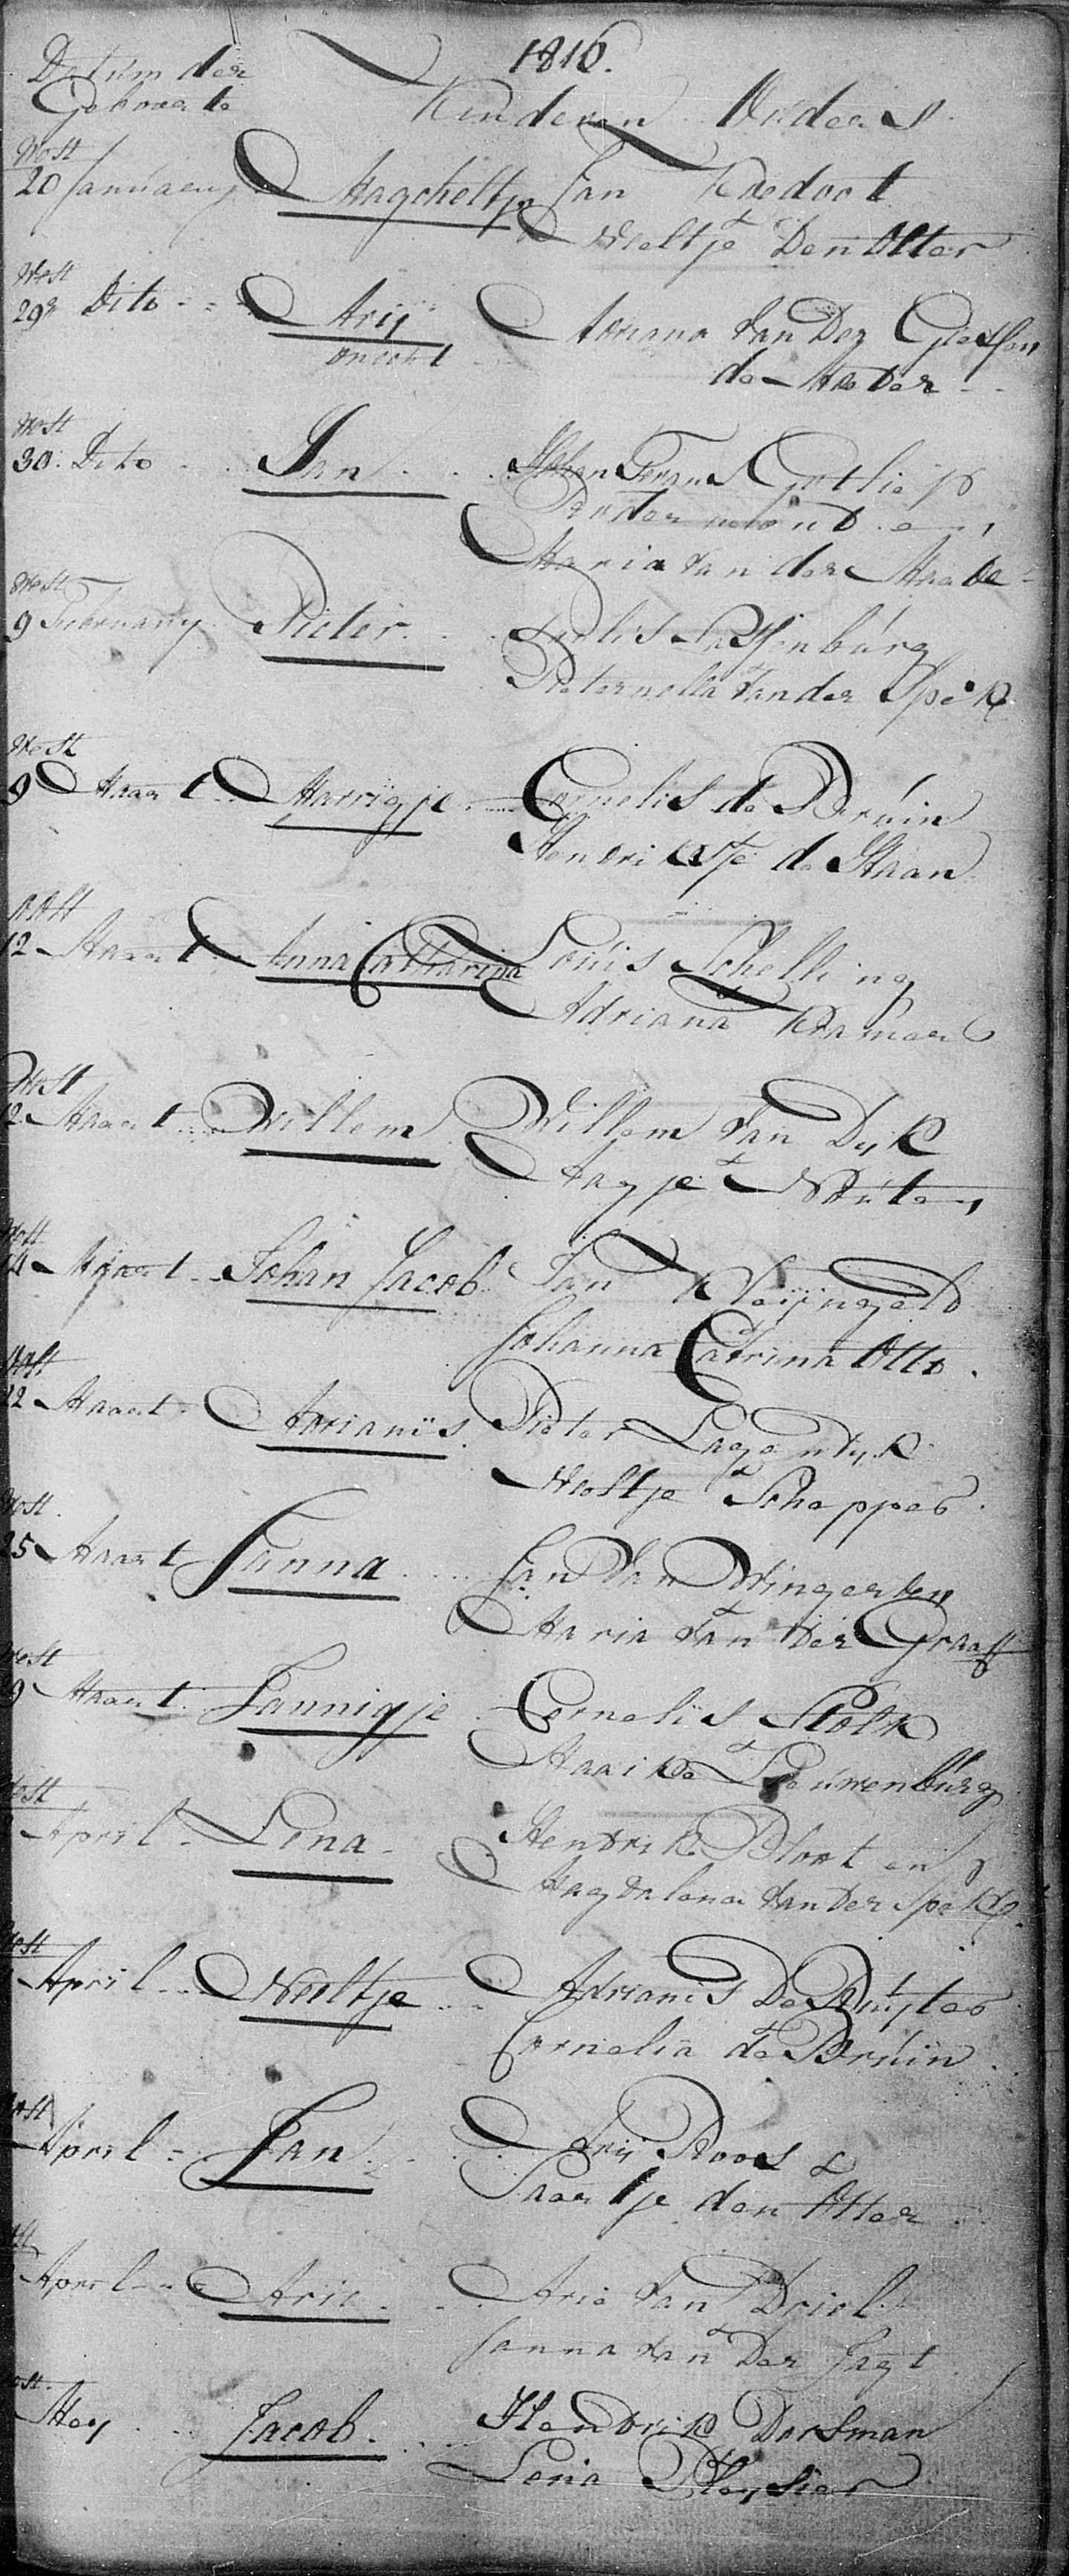 1816.
Datum der
Geboorte
Kinderen Ouders
West
20 Januarij Magcheltje Jan Kredoot
&
Neeltje Den Otter
West
29 Dito Arij Adriana Van Der Giessen
onecht de Moeder
West
30. Dito Jan Johan Frans Gotlieb
en
Maria Van der Made
West
9 February Pieter Sassenburg
&
Pieternella Van der Spek
West
9 Maart Marrigje Cornelis de Bruin
Hendrikje de Haan
West
12 Maart Anna Catharina Louis Schelling
&
Adriana Kramer
West
12 Maart Willem Willem Van Dyk
&
Aagje
West
Maart Johan Jacob Jan Kleijngeld
&
Johanna Catrina Otto.
West
22 Maart Adrianus Pieter Lagendyk
&
Neeltje Schepper
West
25 Maart Janna Jan Van Wingerden
&
Maria Van der Graaff
West
Maart Jannigje Cornelis Stolk
&
Maaike Leeuwenburg
West
April Lena Hendrik Bloot en
Magdalena Van Der Spek
West
April Neeltje Adrianus De Ruijter
&
Cornelia de Bruin
West
April Jan Arij Roos &
Paartje den Otter
April Arie Arie Van Driel
&
Janna Van Der Jagt
Mey Jacob Hendrik Dorsman
Lena Pleysier